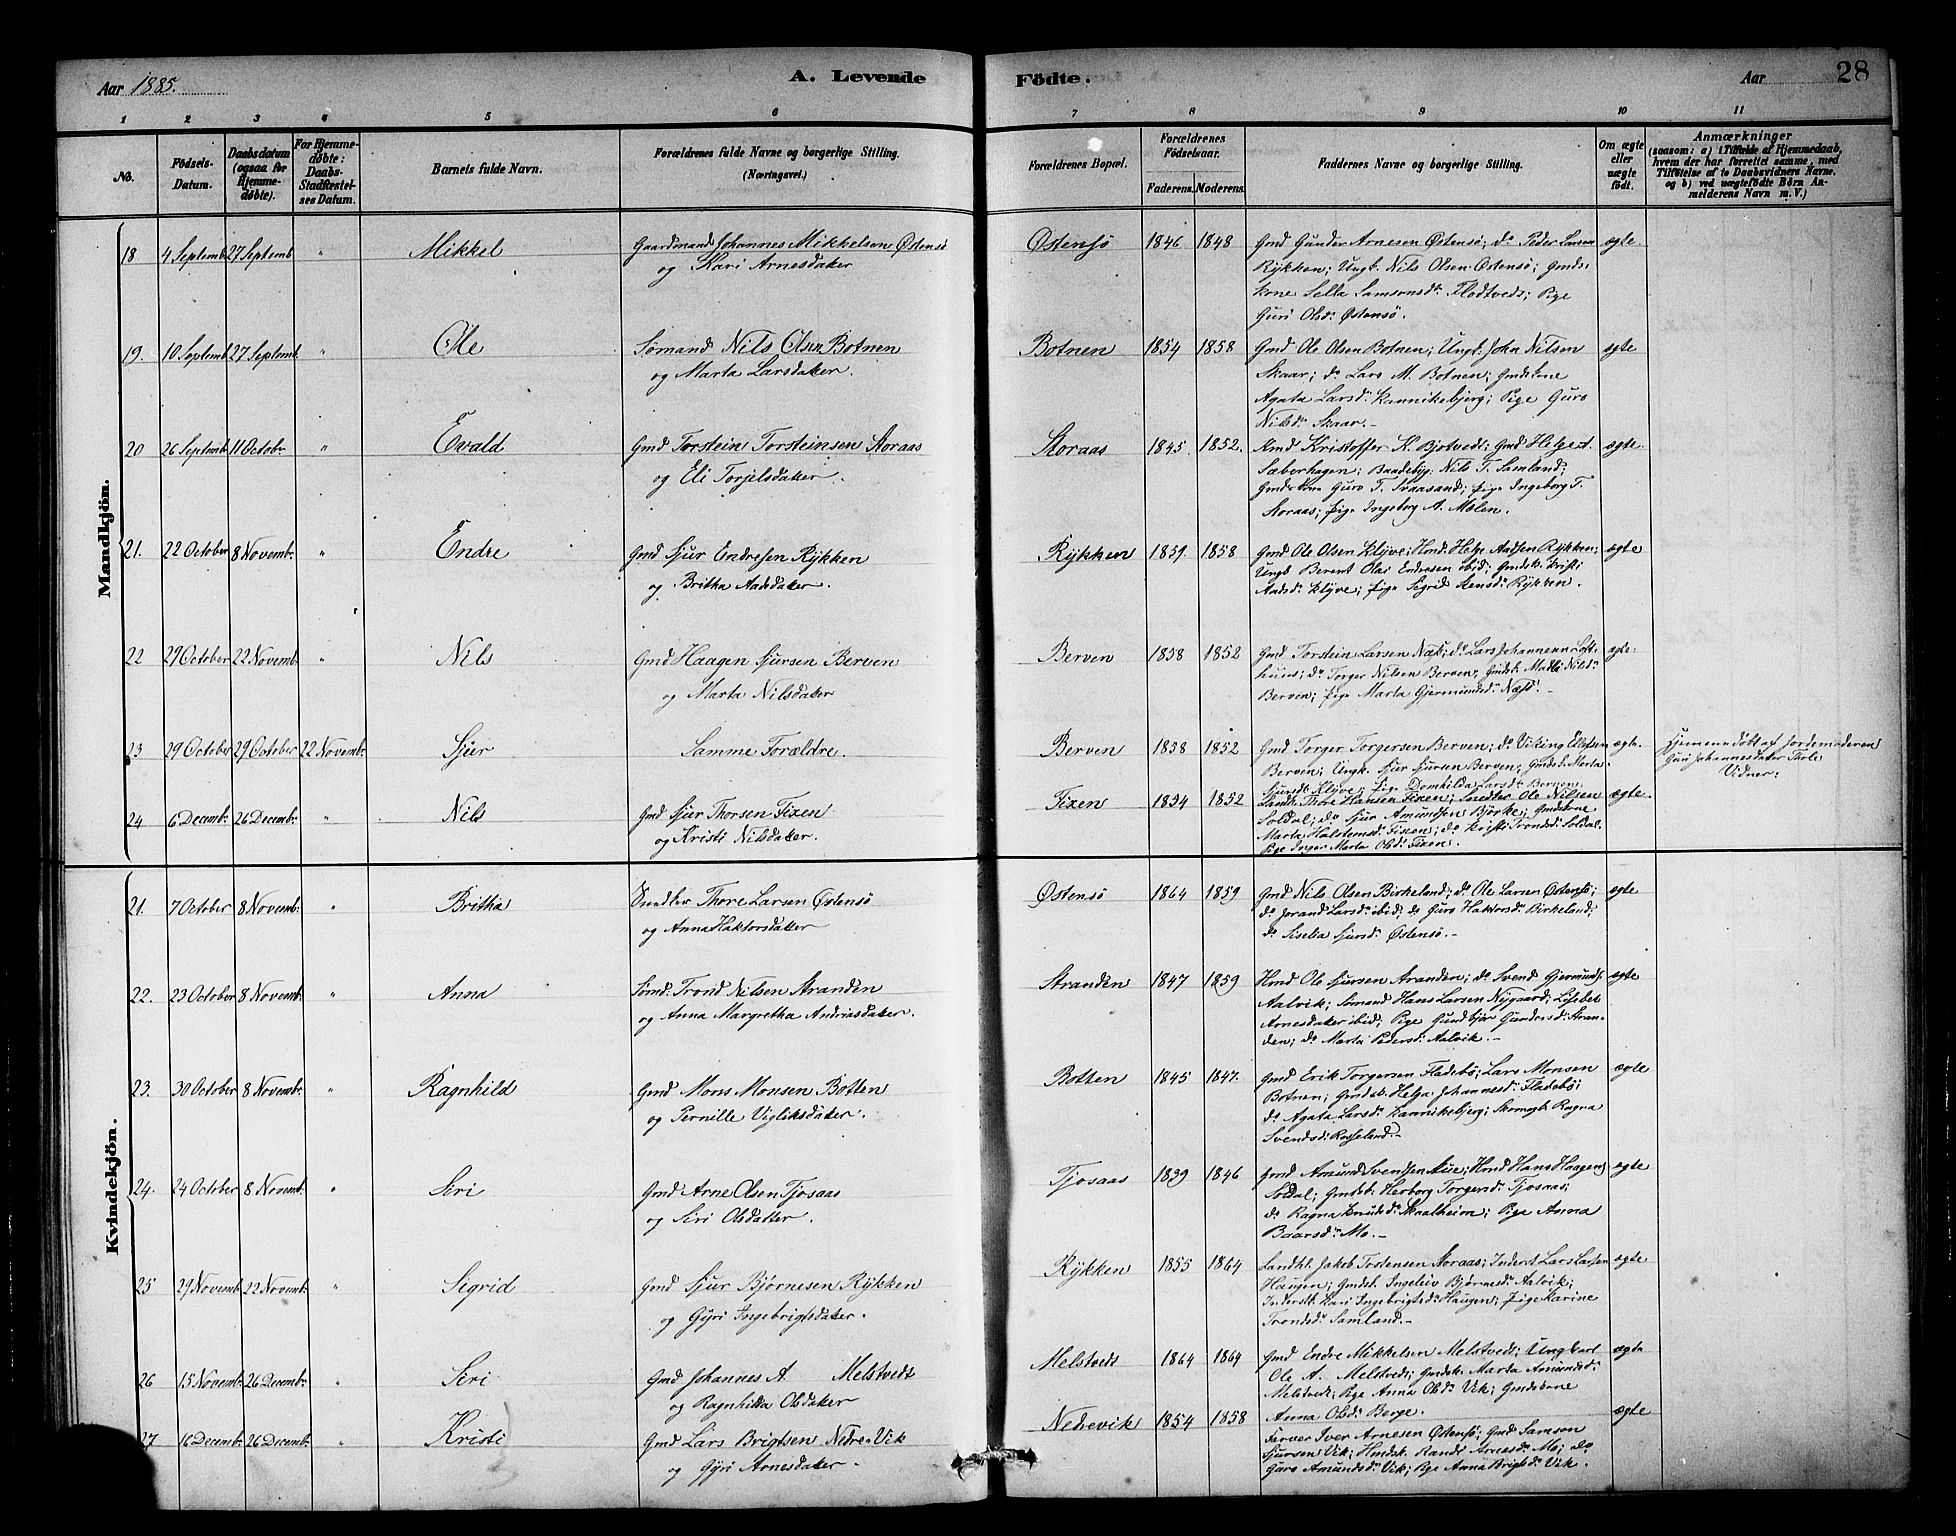 Aar 1885.
A. Levende
Födte.
Aar
28
1 2 3 4 5 6 7 8 9 10 11
No.
Födsels-Datum.
Daabsdatum (ogsaa for Hjemmedöbte).
For Hjemmedöbte: Daabs-Stadfæstelses Datum.
Barnets fulde Navn.
Forældrenes fulde Navne og borgerlige Stilling. (Næringsvei.)
Forældrenes Bopæl.
Forældrenes Födselsaar.
Faderens. Moderens.
Faddernes Navne og borgerlige Stilling.
Om ægte eller uægte födt.
Anmærkninger (saasom: a) i Tilfælde af Hjemmedaab, hvem der har forrettet samme, med Tilföielse af to Daabsvidners Navne. og b) ved uægtefödte Börn Anmelderens Navn m. V.)
Mandkjön.
18 4 Septemb 27 Septemb " Mikkel Gaardmand Johannes Mikkelsen Østensö Østensö 1846 1848 Gmd Gunder Arnesen Østensö; do Peder Larsen ægte.
og Kari Arnesdatter Rykken; Ungk. Nils Olsen Østensö; Gmds.
kone Sella Samsonsdr. Flotveds; Pige
Guri Olsdr Østensö.
19. 10 Septemb. 27 Septemb. " Ole Sømand Nils Olsen Botnen Botnen 1854 1858 Gmd Ole Olsen Botnen; Ungk. John Nilsen ægte
og Marta Larsdatter. Skaar; do Lars M. Botnen; Gmdskone
Agata Larsdr. Kannikebjerg; Pige Guro
Nilsdr Skaar.-
20 26 Septemb 11 Octobr " Evald Gmd Torstein Torsteinsen Storaas Storaas 1845 1852. Kmd Kristoffer K. Bjotveds; Gmd Helge T. ægte.
og Eli Torjelsdatter. Sæberhagen; Nils T. Samland;
Gmdskone Guro T. Svaasand; Pige Ingeborg T.
Storaas; Pige Ingeborg A. Molen.
21. 22 October 8 Novembr. " Endre Gmd Sjur Endresen Rykken Rykken 1859 1858 Gmd Ole Olsen Klyve; Hmd: Helge Aadsen Rykken; ægte
og Britha Aadsdatter. Ungk Berent Olai Endresen ibid; Gmdsk. Kristi
Aadsdr. Klyve; Pige Sigrid Stensdr. Rykken.
22 29 October 22 Novemb. " Nils Gmd Haagen Sjursen Berven Berven 1858 1852 Gmd Torstein Larsen Næs; do Lars Johannesen Loft- ægte.
og Marta Nilsdatter huus; do Torger Nilsen Berven; Gmdsk. Madli Nilsdr
Berven; Pige Marta Gjermundsdr. Næss. -
23 29 October 29 October 22 Novemb. Sjur Samme Forældre. Berven 1858 1852 Gmd Torger Torgersen Berven; do Viking Ellefsen ægte. Hjemmedöbt af Jordemoderen
Berven; Ungk. Sjur Sjursen Berven; Gmdsk. Marta Guri Johannesdatter Thole
Sjursdr. Klyve; Pige Domhilda Larsdr. Berven. Vidner:
24 6 Decembr 26 Decembr. " Nils Gmd Sjur Thorsen Fixen Fixen 1854 1852 Landh. Thore Hansen Fixen; Smed Ole Nilsen ægte.
og Kristi Nilsdatter. Soldal; do Sjur Amundsen Björke; Gmdskone
Marta Halstensdr. Fixen; do Kristi Trondsdr Soldal.
Pige Inger Marta Olsdr. Fixen.
Kvindekjön.
21. 7 October 8 Novemb. " Britha Thore Larsen Østensö Østensö 1864 1859 Gmd Nils Olsen Birkeland; do Ole Larsen Østensö; ægte
og Anna Haktorsdatter do Jorand Larsdr. ibid; do Guro Haktorsdr. Birkeland;
do Siselia Sjursdr. Østensö. -
22. 23 October 8 Novemb. " Anna Sömd. Trond Nilsen Stranden Stranden 1847 1859 Hmd Ole Sjursen Stranden; do Svend Gjermunds. ægte
og Anna Margretha Andriasdatter. Aalvik; Sömand Hans Larsen Nygaard; Lisbet
Arnesdatter ibid; Pige Gundbjör Gundersdr. Stran-
den; do Marta Pedersdr. Aalvik. -
23. 30 October 8 Novemb. " Ragnhild Gmd Mons Monsen Botten Botten 1845 1847. Gmd Erik Torgersen Fladebö; Lars Monsen ægte
og Pernille Vigliksdatter. Botnen; Gmdsk Helga Johannesdr. Fladebö;
do Agata Larsdr. Kannikebjerg; Ragna
Svendsdr. Rosseland. -
24. 24 October 8 Novemb. " Siri Gmd Arne Olsen Tjosaas Tjosaas 1839 1846 Gmd Amund Svendsen Aue; Hmd Hans Haagens. ægte
og Siri Olsdatter. Soldal; Gmdsk. Herborg Torgersdr. Tjosaas;
do Ragna Knudsdr. Skaalheim; Pige Anna
Baarsdr. Mo. -
25 29 Novemb 22 Novemb. " Sigrid Gmd Sjur Bjørnesen Rykken Rykken 1855 1864 Landhl. Jakob Torstensen Storaas; Inderst Lars Larsen ægte
og Gyri Ingebrigtsdatter. Haugen; Gmdsk. Ingeleiv Bjørnesdr. Aalvik;
Inderstk. Kari Ingebrigtsdr. Haugen; Pige Karine
Trondsdr. Samland. -
26 15 Novemb. 26 Decemb. " Siri Gmd Johannes A Melstvedt Melstvedt 1864 1864 Gmd Endre Mikkelsen Melstveds; Ungkarl ægte
og Ragnhilda Olsdatter Ole A. Melstveds; Gmdsk. Marta Amundsdr.
Melstveds; Pige Anna Olsdr. Vik; Gmdskone
Anna Olsdr. Berge.
27 16 Decemb. 26 Decemb. " Kristi Gmd Lars Brigtsen Nedre Vik Nedrevik 1854 1858 Iver Arnesen Østensö; Gmd Samson ægte
og Gyri Arnesdatter. - Sjursen Vik; Hmdsk. Randi Arnesdr. Mo; do
Guro Amundsdr. Vik; Pige Anna Brigtsdr. Vik.